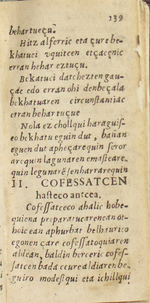 139
behartueçu.
Hitz alferric eta çure be-
khatuei vquitcen etçaegnic
erran behar eztuçu.
Bekatuci datchezten gau-
çac edo erran ohi denbeçala
bekhatuaren circunstantiac
erran behar tuçue
Nola ez chollqui haragiz-
co bekhatu eguin dut, bañan
eguen dut aphez arequin seror
arequin lagunaren emastear-
quin legunare senharrarequin
II. COFESSATCEN
hasteco antcea.
Cofessatceco ahalic hobe-
quiena preparatu arenean
aphurbat belhurico
egonen çare cofessatoquiaren
aldean, baldin berceric cofes-
satcen bada eçure aldiaren be-
guiro modesqui eta ichillqui